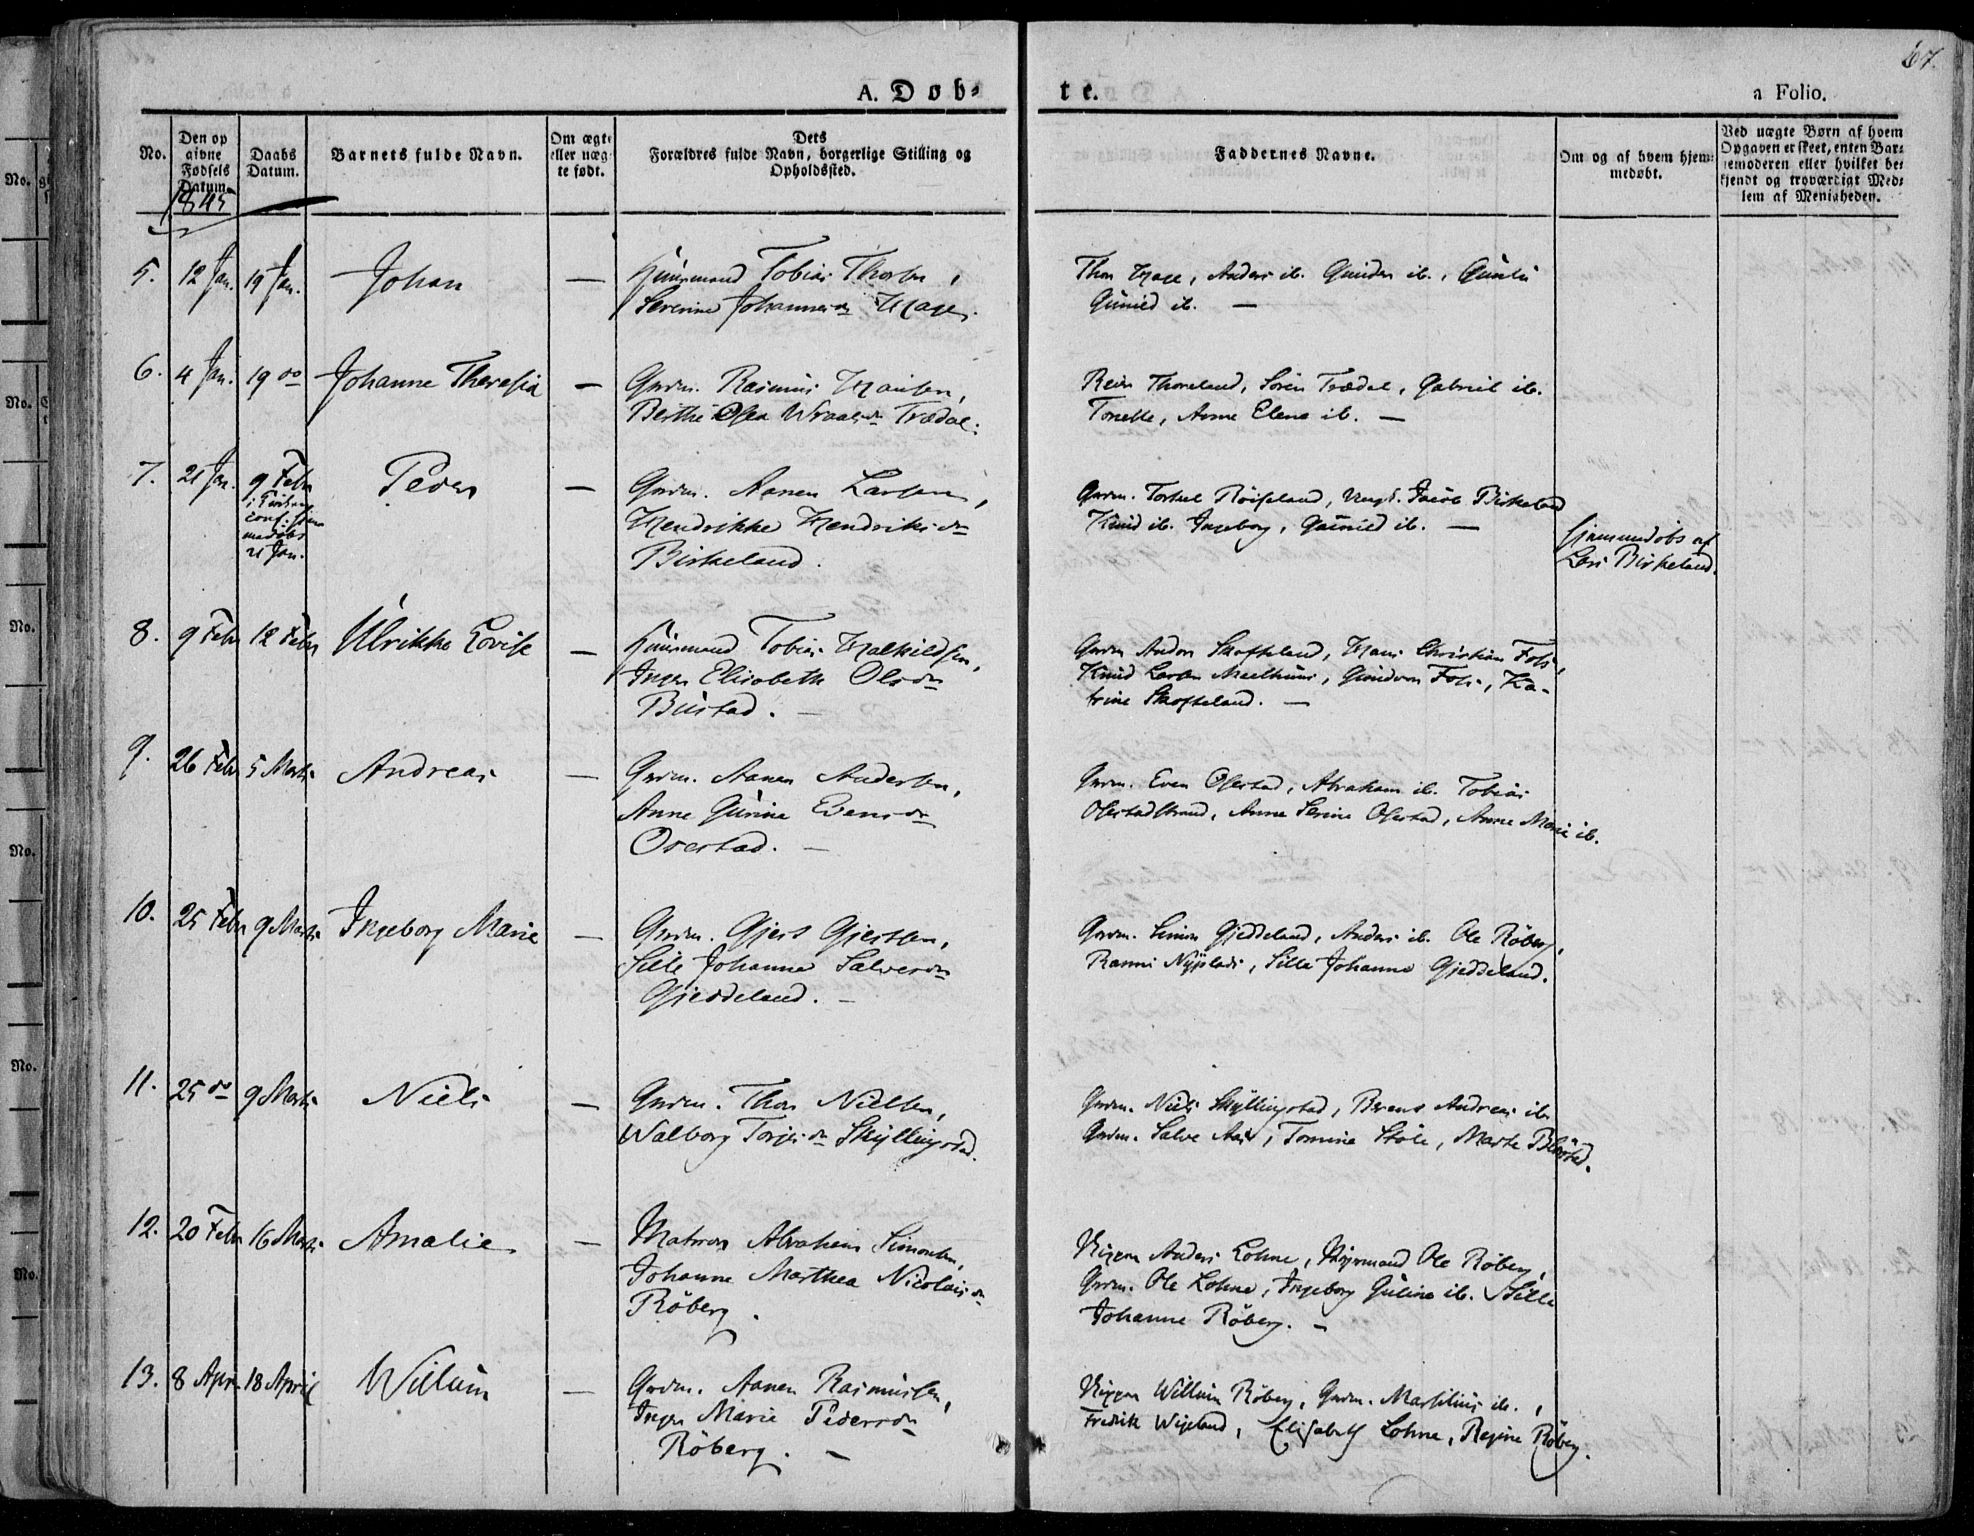 67.
A. Døb-
te.
a Folio.
No.
Den op
givne
Fødsels
Datum.
Daabs
Datum.
Barnets fulde Navn.
Om ægte
eller uæg-
te født.
Dets
Forældres fulde Navn, borgerlige Stilling og
Opholdssted.
Faddernes Navne.
Om og af hvem hjem-
medøbt.
Ved uægte Børn af hvem
Opgaven er skeet, enten Bar-
nemoderen eller hvilket be-
kjendt og troværdigt Med-
lem af Menigheden.
1845
5. 12 Jan. 19 Jan. Johan —
Huusmand Tobias Thorsen,
Severine Johannesdr Hage.
Thor Hage, Anders ib. Gunder ib.,
Gunild ib. —
6. 4 Jan. 19 do Johanne Theresia —
Grdm. Rasmus Hansen,
Berthe Osea Wraalsdr Trædal.
Reier Thoreland, Sören Trædal, Gabriel ib.
Tonette, Anne Elene ib. —
7. 21 Jan. 9 Febr Peder —
21 Jan.
Grdm. Aanen Larsen,
Hendrikke Hendriksdr
Birkeland.
Grdm. Torkel Röiseland, Ungk. Jacob Birkeland
Knud ib. Ingeborg, Gunild ib. —
hjemmedöbt af
Lars Birkeland.
8. 9 Febr 12 Febr Ulrikke Lovise —
Huusmand Tobias Halvildsen,
Inger Elisabeth Olsdr
Bustad. —
Grdm Andors Skofteland, Hans Christian Foss,
Knud Larsen Meelhuus, Gundvor Foss, Ka-
trine Skofteland. —
9. 26 Febr 5 Marts Andreas —
Grdm. Aanen Andersen,
Anne Gurine Evensdr
Osestad. —
Grdm. Even Osestad, Abraham ib. Tobias
Osestadstrand, Anne Serine Osestad, Anne Marie ib.
10. 25 Febr 9 Marts Ingeborg Marie —
Grdm. Gjert Gjertsen,
Sille Johanne Salvesdr
Gjeddeland. —
Grdm. Simon Gjeddeland, Anders ib. Ole Röberg,
Ranni Nyplads, Sille Johanne Gjeddeland.
11. 25 do 9 Marts Niels —
Grdm. Thor Nielsen,
Walborg Torjesdr Skyllingstad.
Grdm. Niels Skyllingstad, Berent Andreas ib.
Grdm. Salve Aas, Tomine Stöle, Marte
12. 20 Febr 16 Marts Amalie —
Matros Abraham Simonsen,
Johanne Marthea Nicolaisdr
Röberg.
Anders Lohne, Ole Röberg,
Grdm. Ole Lohne, Ingeborg Guline ib. Sille
Johanne Röberg. —
13. 8 Apr. 18 April Willum —
Grdm. Aanen Rasmussen,
Inger Marie Pedersdr
Röberg. —
Willum Röberg, Grdm. Marsilius ib.,
Fredrik Wigeland, Elisabeth Lohne, Regine Röberg.